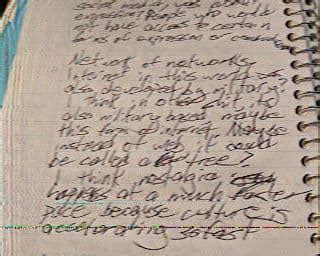 social media, was
expression? People who would
n't have access to certain
forms of expression or
Network of networks,
Internet in this world
also developed by military?
I think in other it is
also military based, maybe
this form of internet. Maybe
instead of web, it could
be called a tree?
I think nostalgia
happens at a much faster
pace because culture is
accelerating